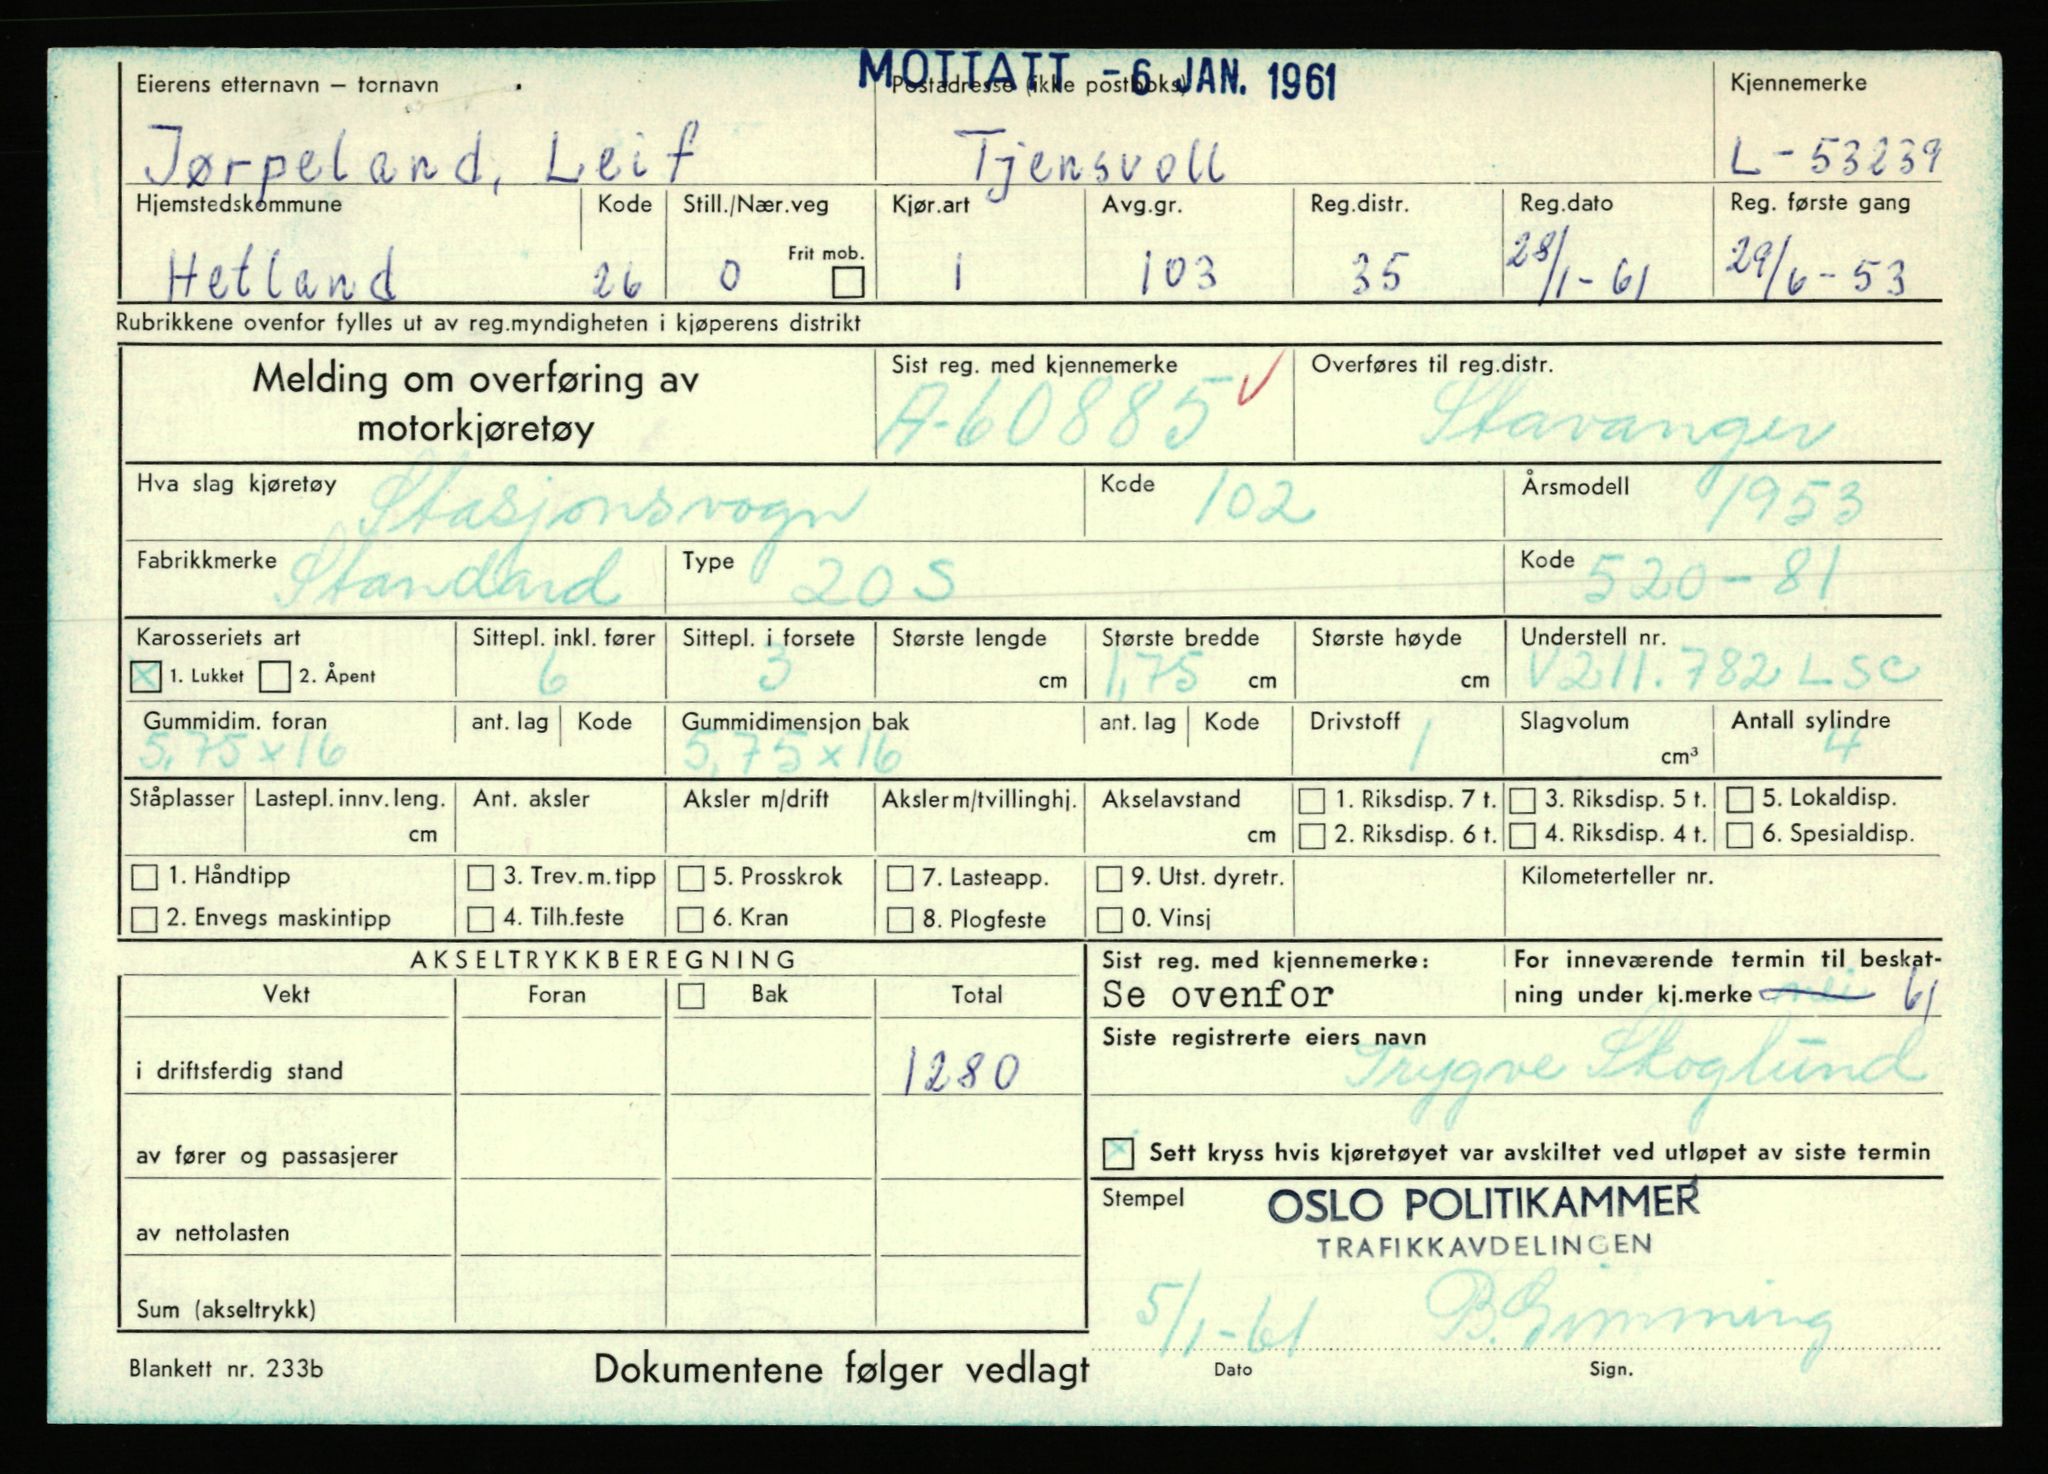 MOTTATT - 6 JAN. 1961
Eierens etternavn — fornavn Postadresse (ikke postboks) Kjennemerke
Jørpeland, Leif Tjensvoll L-53239
Hjemstedskommune Kode Still./Nær.veg Kjør.art Avg.gr. Reg.distr. Reg.dato Reg. første gang
Frit mob.
Hetland 26 0 1 103 35 28/1-61 29/6-53
Rubrikkene ovenfor fylles ut av reg.myndigheten i kjøperens distrikt
Melding om overføring av Sist reg. med kjennemerke Overføres til reg.distr.
motorkjøretøy A-60885 Stavanger
Hva slag kjøretøy Stasjonsvogn Kode 102 Årsmodell 1953
Fabrikkmerke Standard Type 20 S Kode 520-81
Karosseriets art Sittepl. inkl. fører Sittepl. i forsete Største lengde Største bredde Største høyde Understell nr.
1. Lukket 2. Åpent 6 3 cm 1,75 cm cm V211.782 LSC
Gummidim. foran ant. lag Kode Gummidimensjon bak ant. lag Kode Drivstoff Slagvolum Antall sylindre
5,75 x 16 5,75 x 16 1 cm³ 4
Ståplasser Lastepl. innv. leng. Ant. aksler Aksler m/drift Aksler m/tvillinghj. Akselavstand 1. Riksdisp. 7 t. 3. Riksdisp. 5 t. 5. Lokaldisp.
cm cm 2. Riksdisp. 6 t. 4. Riksdisp. 4 t. 6. Spesialdisp.
1. Håndtipp 3. Trev.m.tipp 5. Prosskrok 7. Lasteapp. 9. Utst. dyretr. Kilometerteller nr.
2. Envegs maskintipp 4. Tilh.feste 6. Kran 8. Plogfeste 0. Vinsj
AKSELTRYKKBEREGNING Sist reg. med kjennemerke: For inneværende termin til beskat-
Vekt Foran Bak Total Se ovenfor ning under kj.merke nei 61
Siste registrerte eiers navn
i driftsferdig stand 1280 Trygve Skoglund
av fører og passasjerer Sett kryss hvis kjøretøyet var avskiltet ved utløpet av siste termin
Stempel OSLO POLITIKAMMER
av nettolasten TRAFIKKAVDELINGEN
Sum (akseltrykk) 5/1-61 B. Gimming
Blankett nr. 233b Dokumentene følger vedlagt Dato Sign.